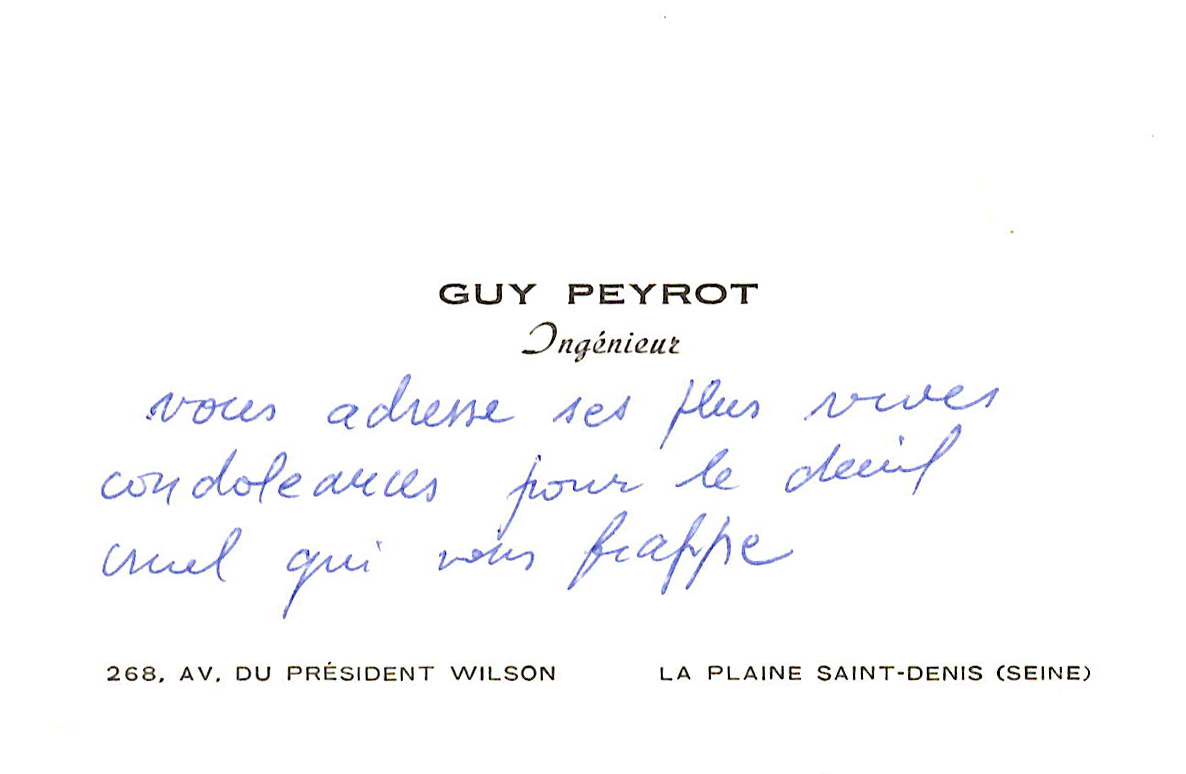 GUY PEYROT
Ingénieur
vous adresse ses plus vives
condoleances pour le deuil
cruel qui vous frappe
268, AV. DU PRÉSIDENT WILSON LA PLAINE SAINT-DENIS (SEINE)